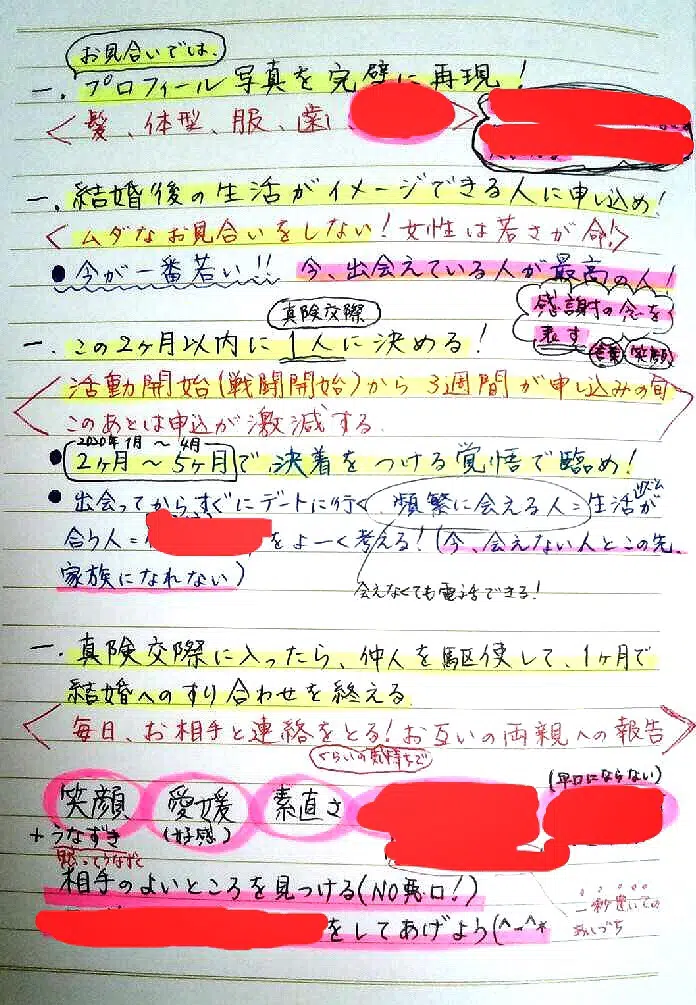 お見合いでは、
一.プロフィール写真を完璧に再現!
<髪、体型、服、歯、>
一.結婚後の生活がイメージできる人に申し込め!
<ムダなお見合いをしない!女性は若さが命!>
●今が一番若い!!今、出会えている人が最高の人!
感謝の念を
表す
言葉 笑顔
真険交際
一.この2ヶ月以内に1人に決める!
<活動開始(戦闘開始)から3週間が申し込みの旬
このあとは申込が激減する.>
2020年1月〜4月
●2ヶ月〜5ヶ月で決着をつける覚悟で臨め!
●出会ってからすぐにデートに行く、頻繁に会える人=生活リズムが
合う人= をよーく考える!(今、会えない人とこの先、
家族になれない)
会えなくても電話できる!
一.真険交際に入ったら、仲人を駆使して、1ヶ月で
結婚へのすり合わせを終える.
<毎日、お相手と連絡をとる!お互いの両親への報告>
くらいの気持ちで
(早口にならない)
笑顔 愛媛 素直さ
+うなずき (好感)
黙ってうなずく
相手のよいところを見つける(NO悪口!)
一秒置いての
あいづち
をしてあげよう(^-^*